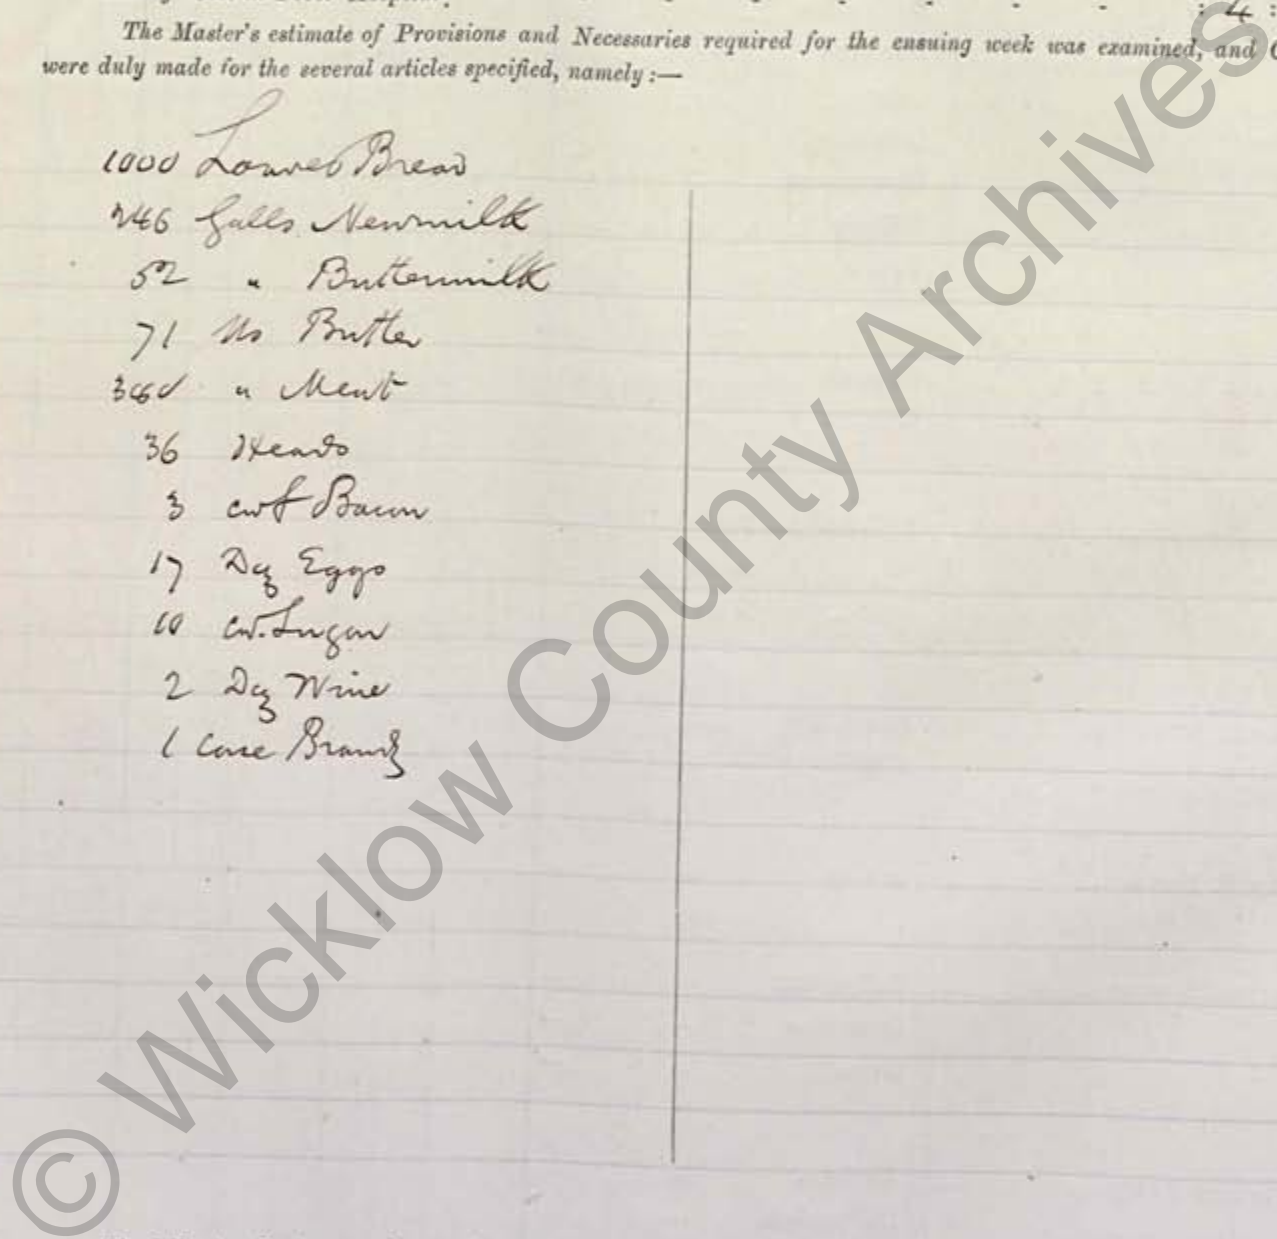 : 4 :
The Master's estimate of Provisions and Necessaries required for the ensuing week was examined, and
were duly made for the several articles specified, namely :—
1000 Loaves Bread
246 Galls Newmilk
52 " Buttermilk
71 lbs Butter
" Meat
36 Heads
3 cwt Bacon
17 Doz Eggs
10 cw. Sugar
2 Doz Wine
1 Case Brandy
© Wicklow County Archives